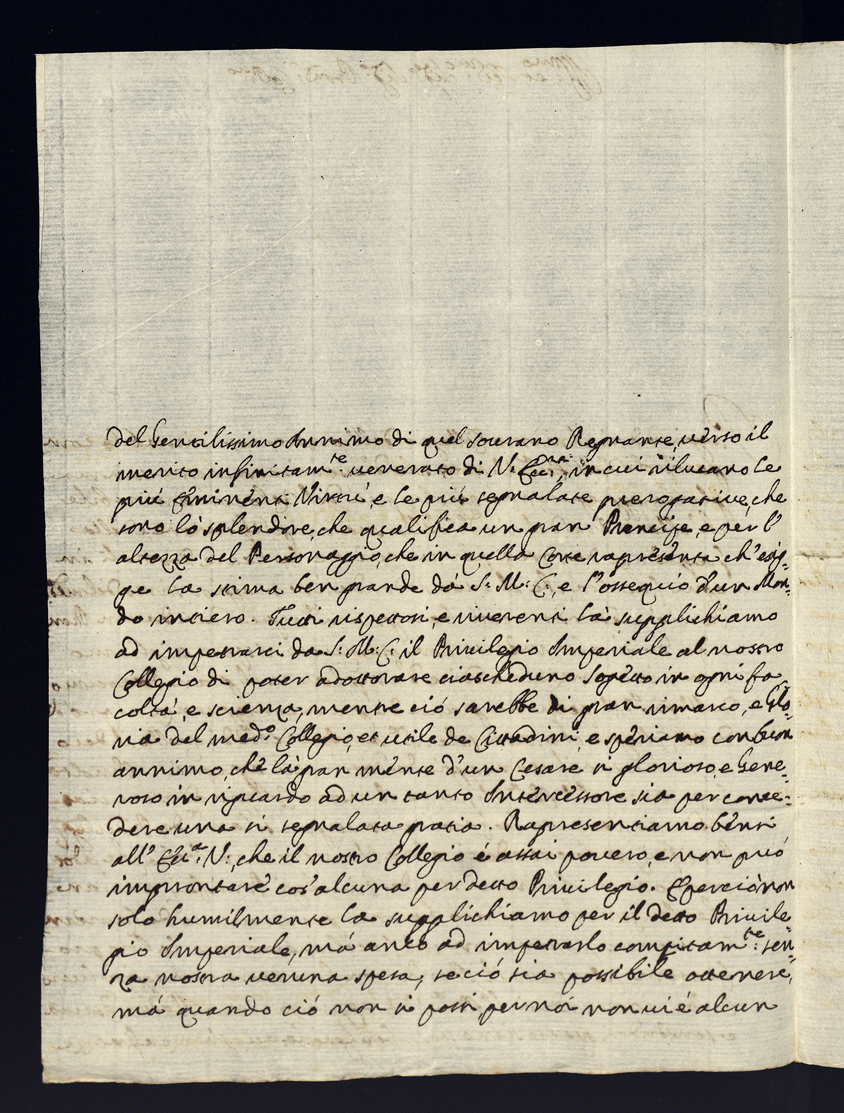 del Gentilissimo Annimo di quel sourano Regnante, uerso il
merito infinitam.te uenerato di V. Ecc.za, in cui rilucano le
più Eminenti Virtù, e le più segnalate prerogatiue, che
sono lo splendore, che qualifica un gran Prencipe, e per l'
altezza del Personaggio, che in quella Corte rapresenta ch'esig=
ge la stima ben grande da S. M. C., e l'ossequio d'un Mon=
do intiero. Tutti rispettosi, e riuerenti la supplichiamo
ad impetrarci da S. M. C. il Priuilegio Imperiale al nostro
Collegio di poter adottorare ciascheduno Sogetto in ogni fa
coltà, e scienza, mentre ciò sarebbe di gran rimarco, e Glo=
ria del med.o Collegio, et utile de Cittadini, e speriamo con buon
annimo, che la gran mente d'un Cesare sì glorioso, e Gene=
roso in riguardo ad un tanto Intercessore sia per conce=
dere una sì segnalata gratia. Rapresentiamo bensì
all' Ecc.a V., che il nostro Collegio é assai pouero, e non può
improntare cos'alcuna per detto Priuilegio. E perciò non
solo humilmente la supplichiamo per il detto Priuile
gio Imperiale, mà anco ad impetrarlo compitam.te sen=
za nostra ueruna spesa, se ciò sia possibile ottenere,
mà quando ciò non si possi, per noi non ui é alcun